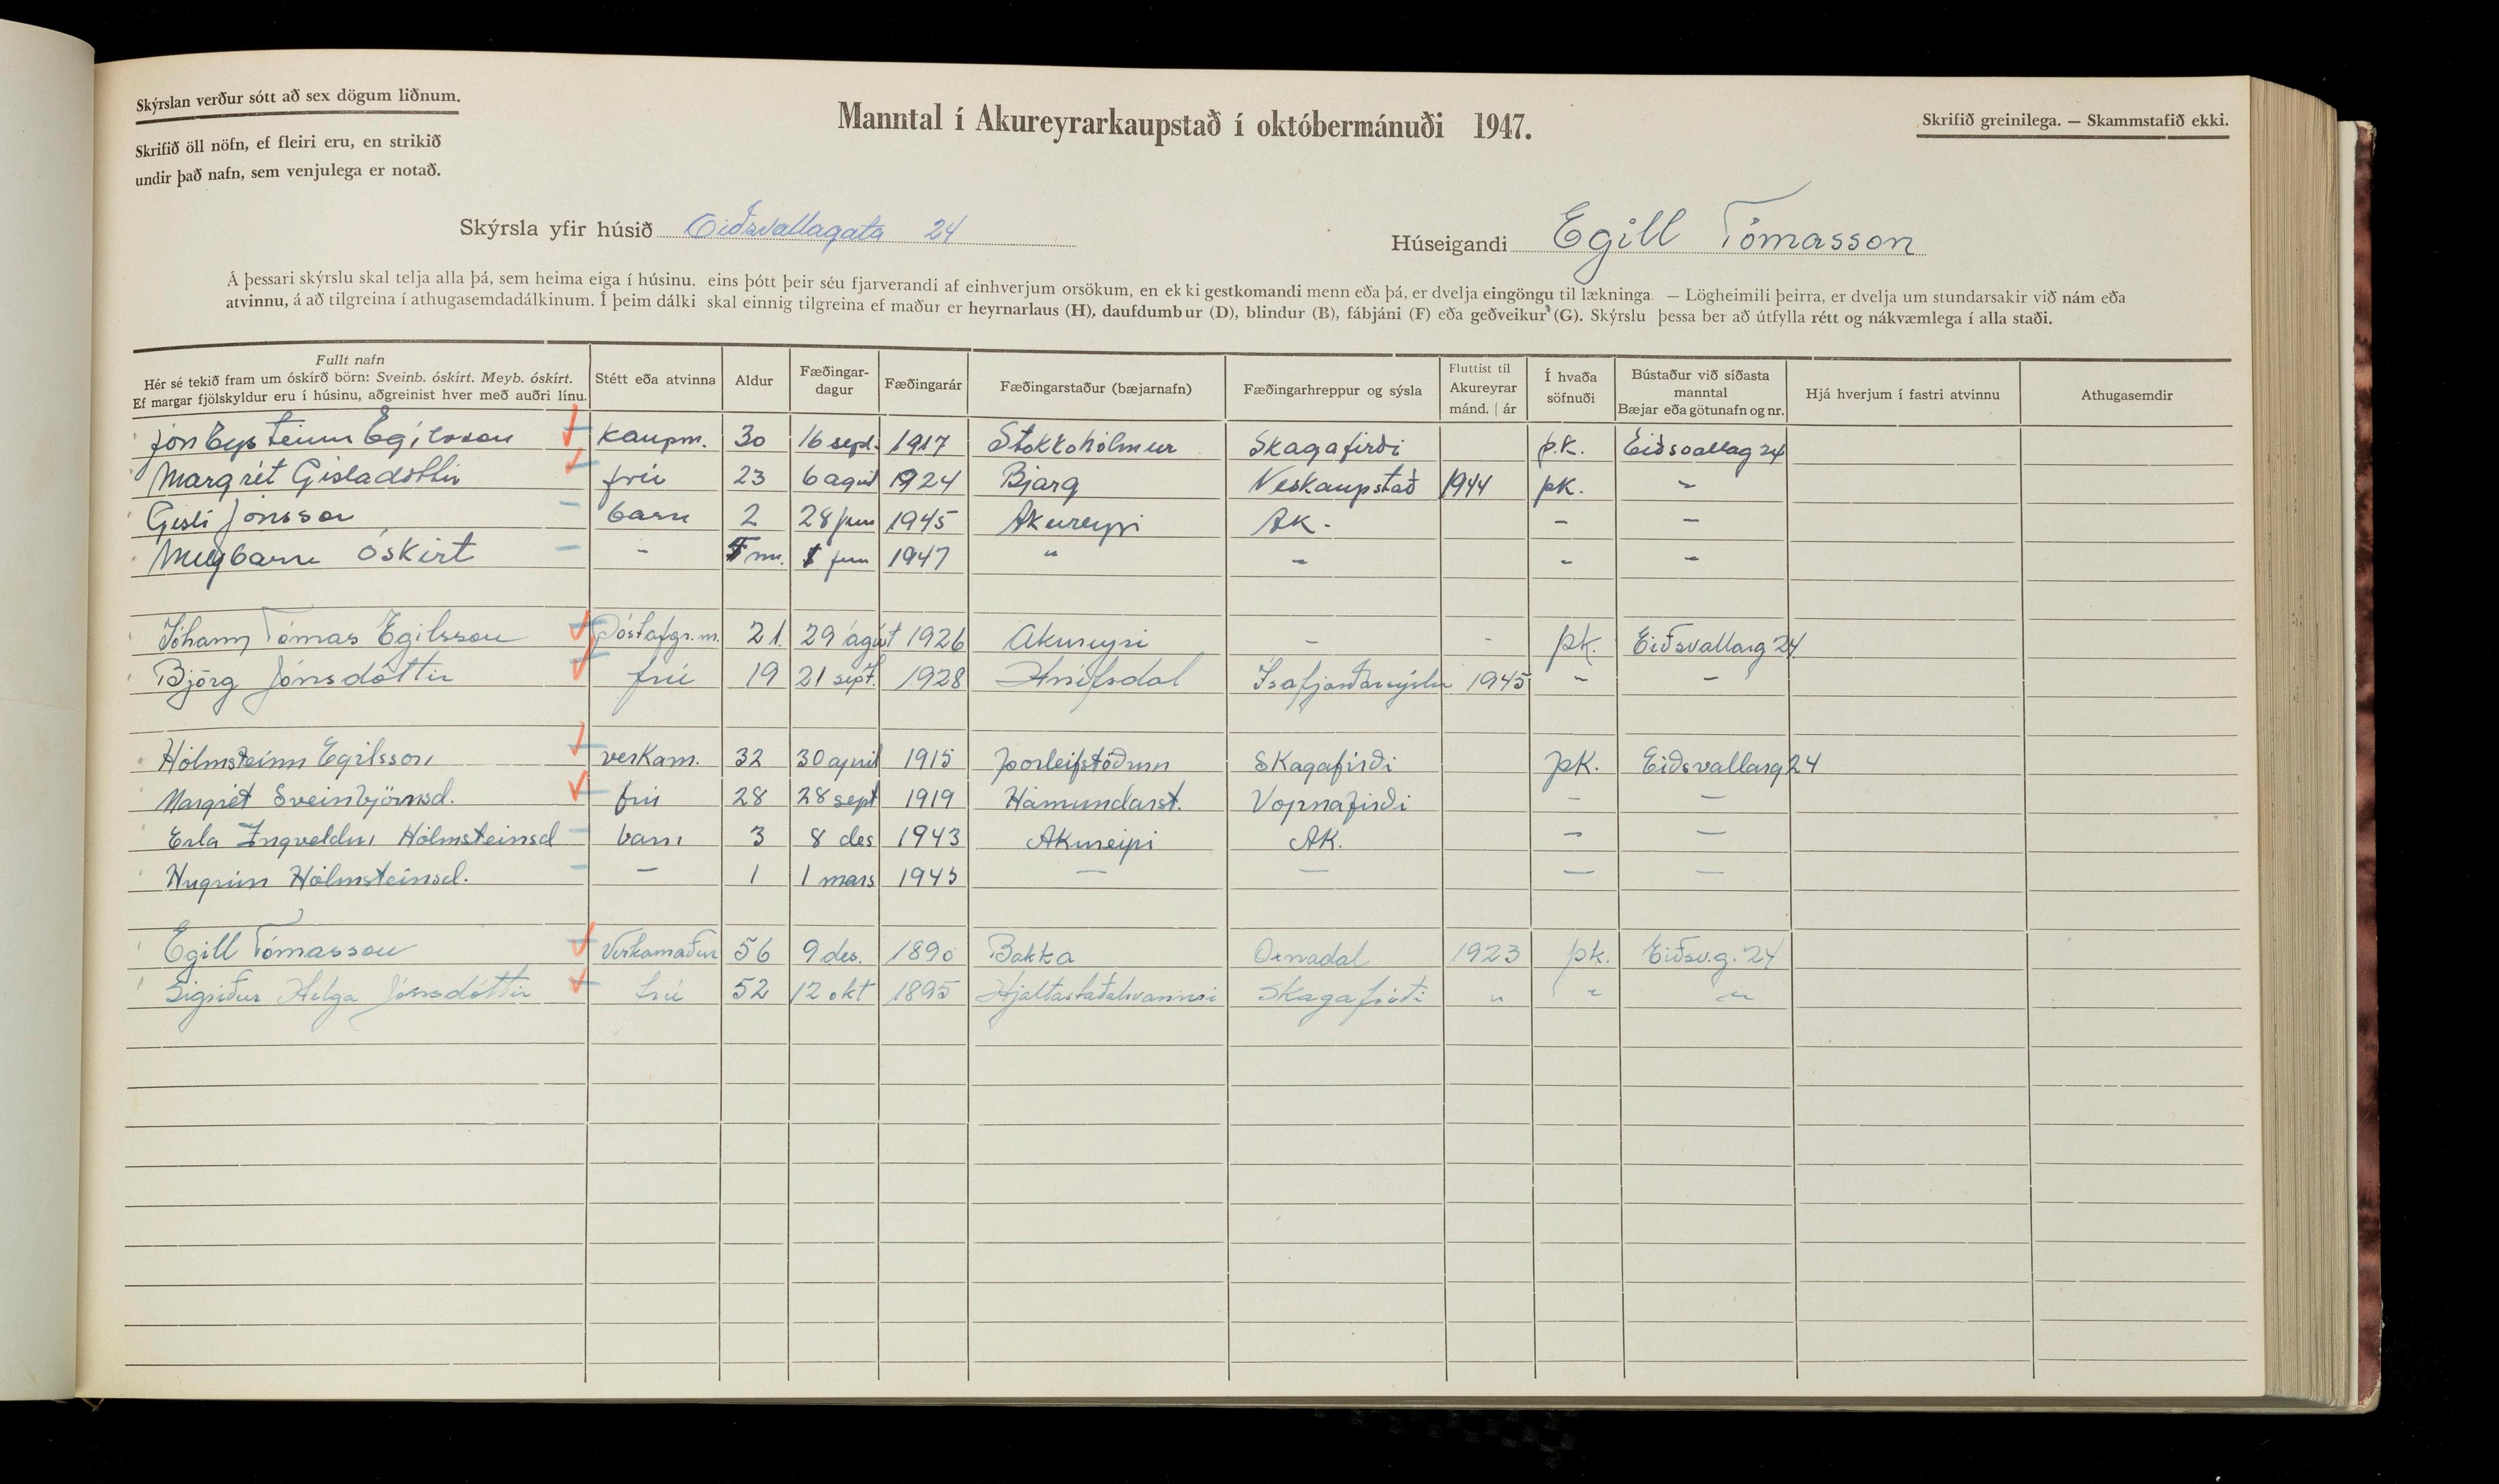 Skýrslan verður sótt að sex dögum liðnum.
Skrifið öll nöfn, ef fleiri eru, en strikið
undir það nafn, sem venjulega er notað.
Manntal í Akureyrarkaupstað í októbermánuði 1947.
Skrifið greinilega. — Skammstafið ekki.
Skýrsla yfir húsið Eiðsvallagata 24
Húseigandi Egill Tómasson
Á þessari skýrslu skal telja alla þá, sem heima eiga í húsinu, eins þótt þeir séu fjarverandi af einhverjum orsökum, en ekki gestkomandi menn eða þá, er dvelja eingöngu til lækninga. — Lögheimili þeirra, er dvelja um stundarsakir við nám eða
atvinnu, á að tilgreina í athugasemdadálkinum. Í þeim dálki skal einnig tilgreina ef maður er heyrnarlaus (H), daufdumbur (D), blindur (B), fábjáni (F) eða geðveikur (G). Skýrslu þessa ber að útfylla rétt og nákvæmlega í alla staði.
Fullt nafn
Hér sé tekið fram um óskírð börn: Sveinb. óskírt. Meyb. óskírt.
Ef margar fjölskyldur eru í húsinu, aðgreinist hver með auðri línu.
Stétt eða atvinna
Aldur
Fæðingar-
dagur
Fæðingarár
Fæðingarstaður (bæjarnafn)
Fæðingarhreppur og sýsla
Fluttist til
Akureyrar
mánd. | ár
Í hvaða
söfnuði
Bústaður við síðasta
manntal
Bæjar eða götunafn og nr.
Hjá hverjum í fastri atvinnu
Athugasemdir
Jón Eysteinn Egilsson kaupm. 30 16 sept. 1917 Stokkhólmur Skagafirði þ.k. Eiðsvallag 24
Margrét Gísladóttir frú 23 6 agúst 1924 Bjarg Neskaupstað 1944 þk. "
Gísli Jónsson barn 2 28 jun 1945 Akureyri AK. - -
Meybarn óskírt - mn. jun 1947 " - - -
Jóhann Tómas Egilsson Póstafgr.m. 21. 29 ágúst 1926 Akureyri - - þk. Eiðsvallarg 24
Björg Jónsdóttir frú 19 21 sept. 1928 Hnífsdal Ísafjarðarsýslu 1945 - -
Hólmsteinn Egilsson verkam. 32 30 apríl 1915 Þorleifstöðum Skagafirði þK. Eiðsvallarg 24
Margrét Sveinbjörnsd. frú 28 28 sept 1919 Hámundarst. Vopnafirði - -
Erla Ingveldur Hólmsteinsd barn 3 8 des 1943 Akureyri AK. - -
Hugrún Hólmsteinsd. - 1 1 mars 1945 - - - -
Egill Tómasson Verkamaður 56 9 des. 1890 Bakka Öxnadal 1923 þk. Eiðsv.g. 24
Sigríður Helga Jónsdóttir frú 52 12 okt 1895 Skagafirði " " "